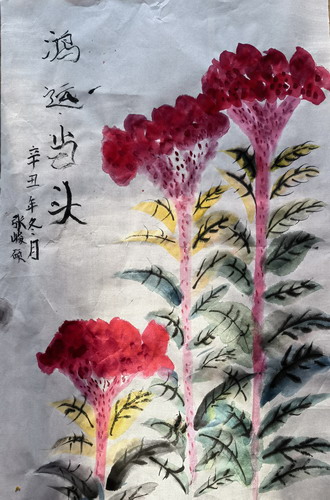 鸿运当头
辛丑年冬月
张峻硕